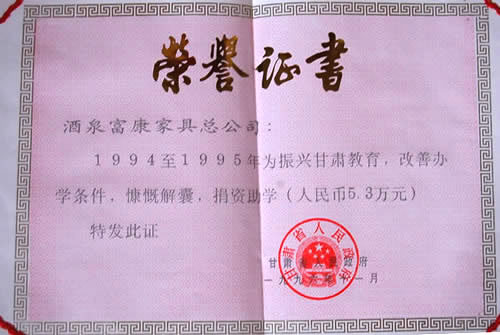 荣誉证书
酒泉富康家具总公司：
1994至1995年为振兴甘肃教育，改善办
学条件，慷慨解囊，捐资助学（人民币5.3万元）
特发此证
甘肃省人民政府
一九九 年十一月
甘肃省人民政府